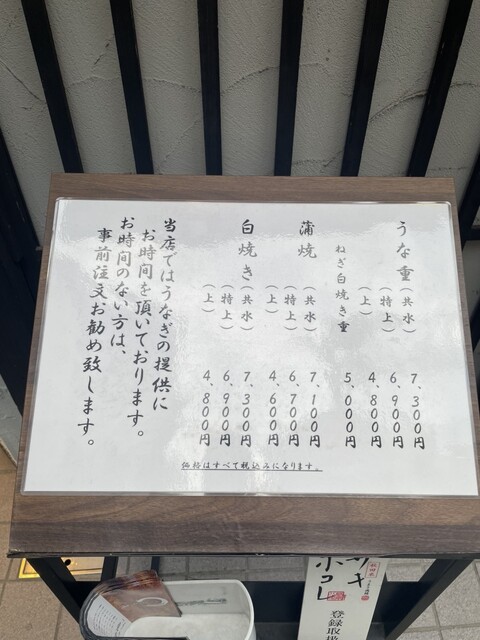 うな重（共水）　７、３００円
（特上）　６、９００円
（上）　４、８００円
ねぎ白焼き重　５、０００円
蒲焼　（共水）　７、１００円
（特上）　６、７００円
（上）　４、６００円
白焼き（共水）　７、３００円
（特上）　６、９００円
（上）　４、８００円
当店ではうなぎの提供に
お時間を頂いております。
お時間のない方は、
事前注文お勧め致します。
価格はすべて税込みになります。
サキ
ホコレ
登録取扱